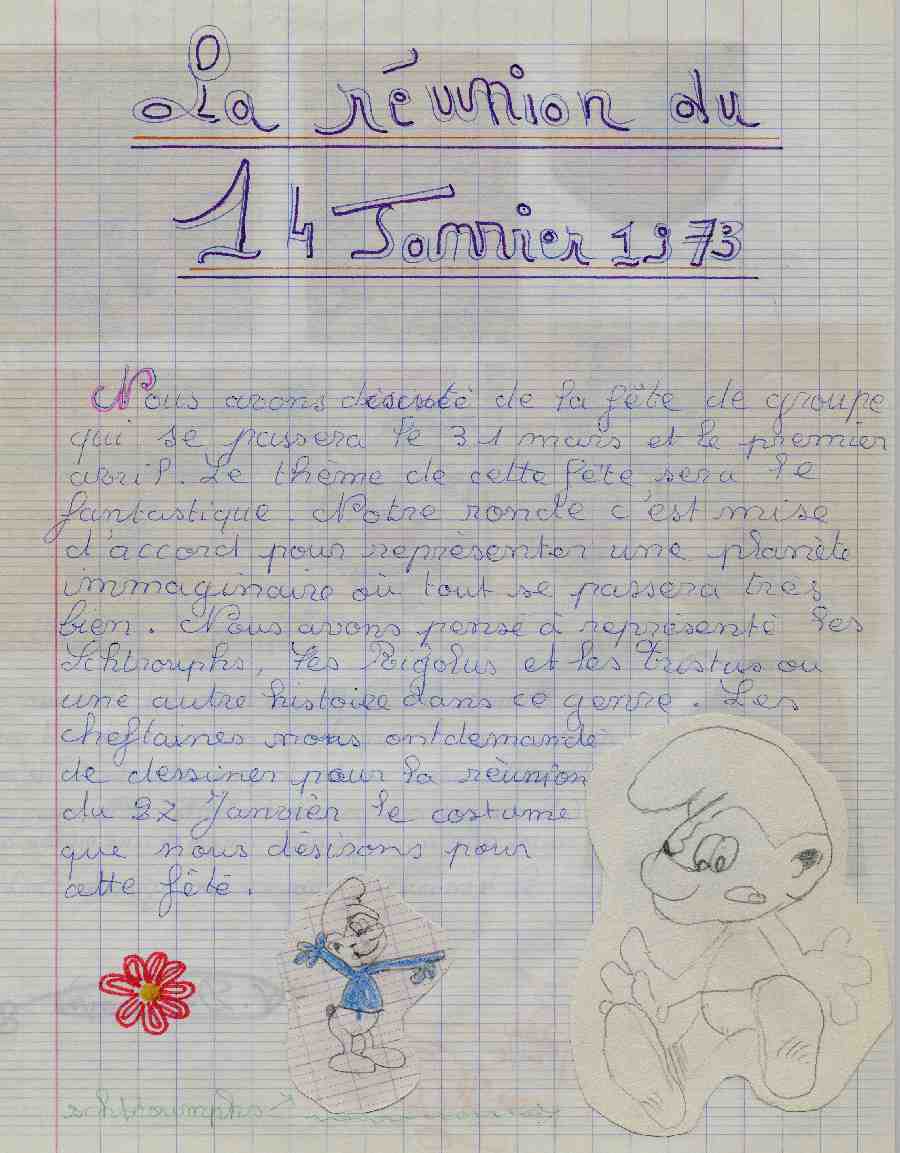 La réunion du
14 Janvier 1973
Nous avons discuté de la fête de groupe
qui se passera le 31 mars et le premier
avril. Le thème de cette fête sera le
fantastique. Notre ronde c'est mise
d'accord pour représenter une planète
immaginaire où tout se passera très
bien. Nous avons pensé à représenté les
Schtroumphs, les Rigolus et les Tristus ou
une autre histoire dans ce genre. Les
cheftaines nous ont demandé
de dessiner pour la réunion
du 27 Janvier le costume
que nous désirons pour
cette fête.